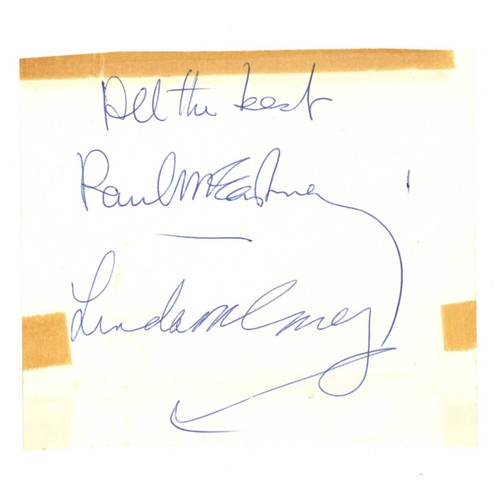 All the best
Paul McCartney
Linda McCartney